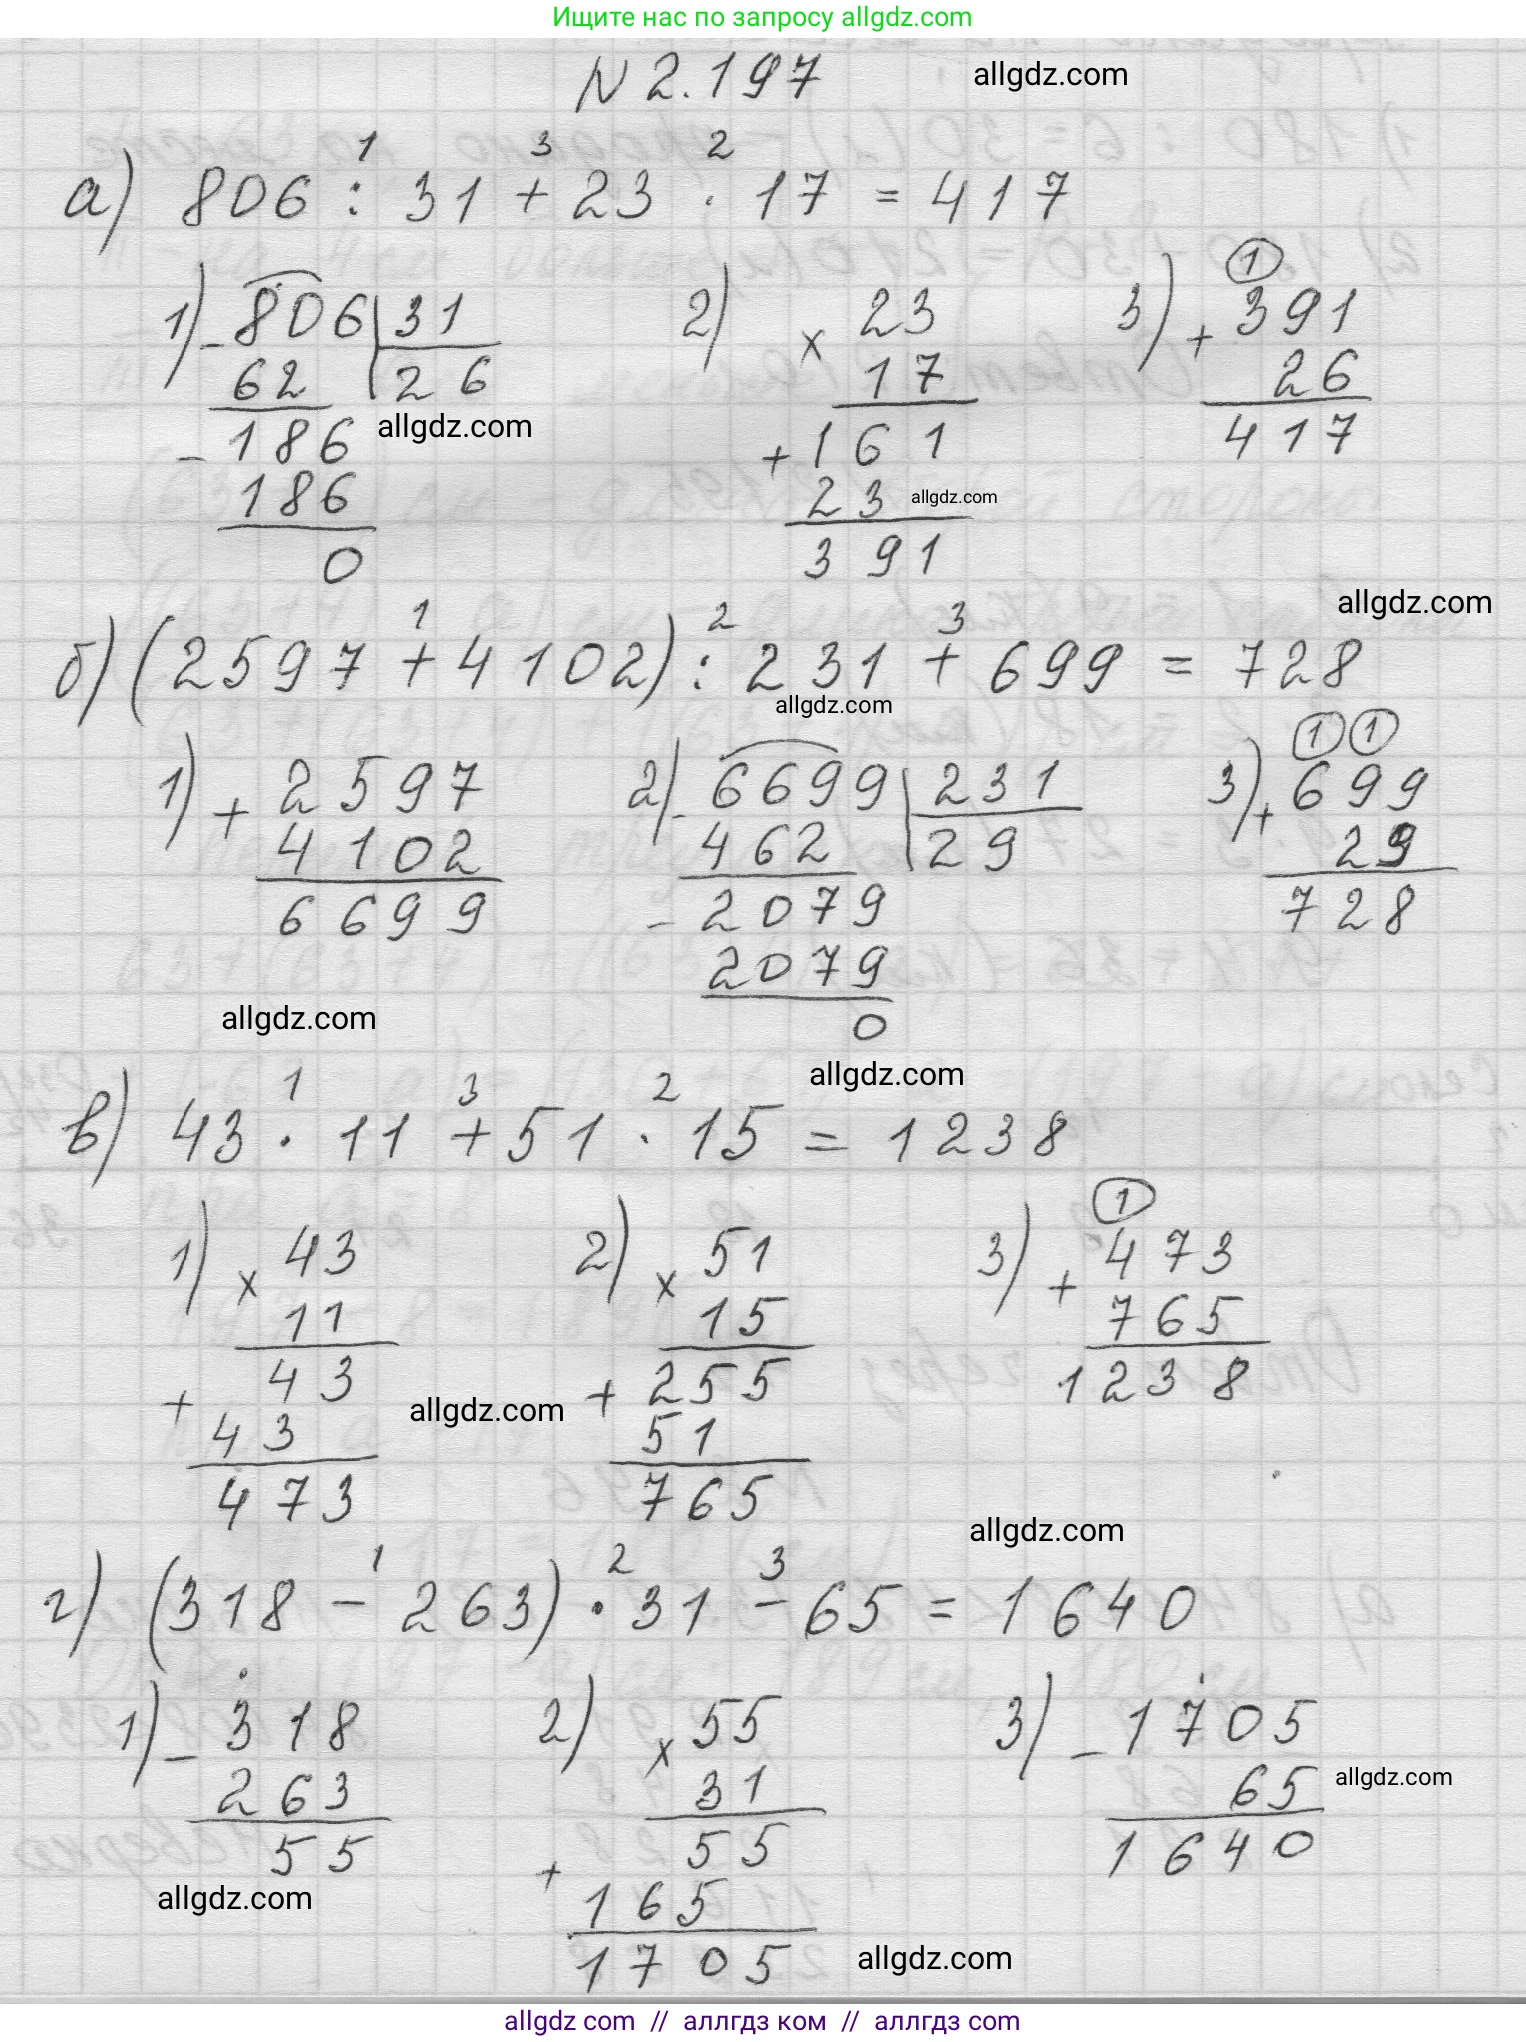 Ищите нас по запросу allgdz.com
N 2.197 allgdz.com
1 3 2
а) 806 : 31 + 23 · 17 = 417
1) - 806 | 31 2) × 23 3) + 391 ①
62 | 26 17 26
allgdz.com
- 186 + 161 417
186 23 allgdz.com
0 391
allgdz.com
1 2 3
б) (2597 + 4102) : 231 + 699 = 728
allgdz.com
1) + 2597 2) - 6699 | 231 3) + 699 ① ①
4102 462 | 29 29
6699 - 2079 728
2079
allgdz.com 0
allgdz.com
1 3 2
в) 43 · 11 + 51 · 15 = 1238
1) × 43 2) × 51 3) + 473 ①
11 15 765
+ 43 allgdz.com + 255 1238
43 51
473 765
allgdz.com
1 2 3
г) (318 - 263) · 31 - 65 = 1640
1) - 318 2) × 55 3) - 1705
263 31 65 allgdz.com
55 + 55 1640
allgdz.com 165
1705 allgdz.com
allgdz com // аллгдз ком // аллгдз com